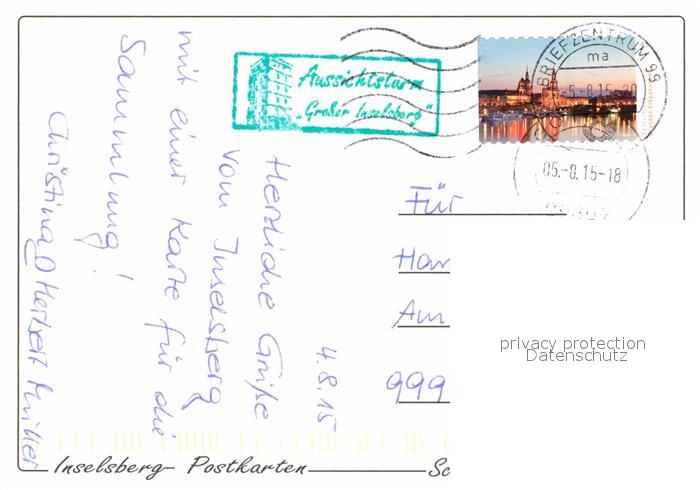 Aussichtsturm
„Großer Inselsberg“
BRIEFZENTRUM 99
ma
-5.-8.15-20
05.-8.15-18
4.8.15
Herzliche Grüße
vom Inselsberg
mit einer Karte für die
Sammlung!
Christina & Herbert Müller
Für
Am
999
privacy protection
Datenschutz
Inselsberg-Postkarten
Sc